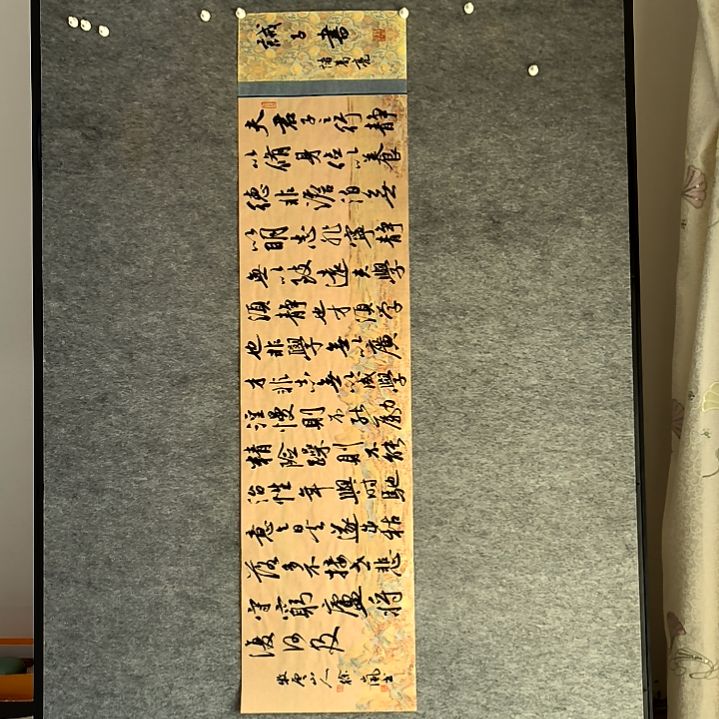 誡子書
諸葛亮
夫君子之行静
以脩身儉以養
德非澹泊無
以明志非寧静
無以致遠夫學
須静也才須学
也非學無以廣
才非志無以成學
淫慢則不能勵
精險躁則不能
治性年與時馳
意與日去遂成枯
落多不接世悲
守窮廬將
復何及
山人徐